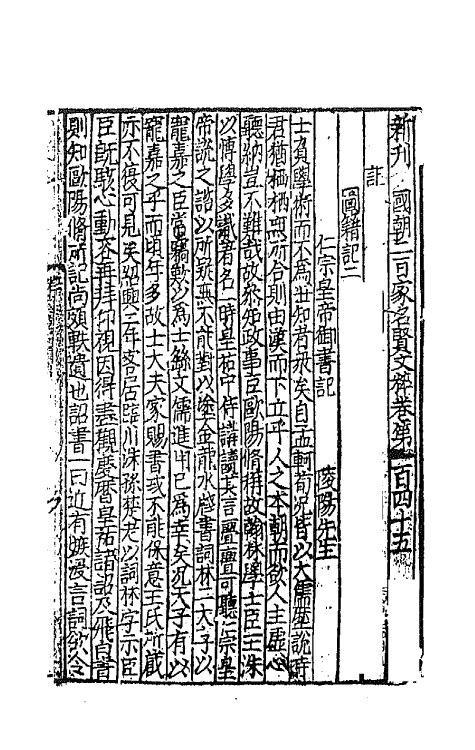 新刊國朝二百家名賢文粹卷第一百四十五
記
圖籍記二
仁宗皇帝御書記 陵陽先生
士負學術而不為世知者衆矣自孟軻荀況皆以大儒歷說時
君猶栖栖無所合則由漢而下立乎人之本朝而欲人主虛心
聽納豈不難哉故參知政事臣歐陽脩撰故翰林學士臣王洙
以博學多識著名一時皇祐中侍講讀其言亹亹可聽仁宗皇
帝說之諮以所疑無不能對以塗金龍水牋書詞林二大字以
寵嘉之臣嘗竊歎以為士雖文儒進由已為幸矣況天子有以
寵嘉之乎而頃年多故士大夫家賜書或不能保意王氏所藏
亦不復可見矣紹興二年客居臨川洙孫楚老以詞林字示臣
臣既駭心動容再拜仰視因得盡觀慶曆皇祐諸詔及飛白書
則知歐陽脩所記尚頗軼遺也詔書一曰近有嫉妄言詞欲令